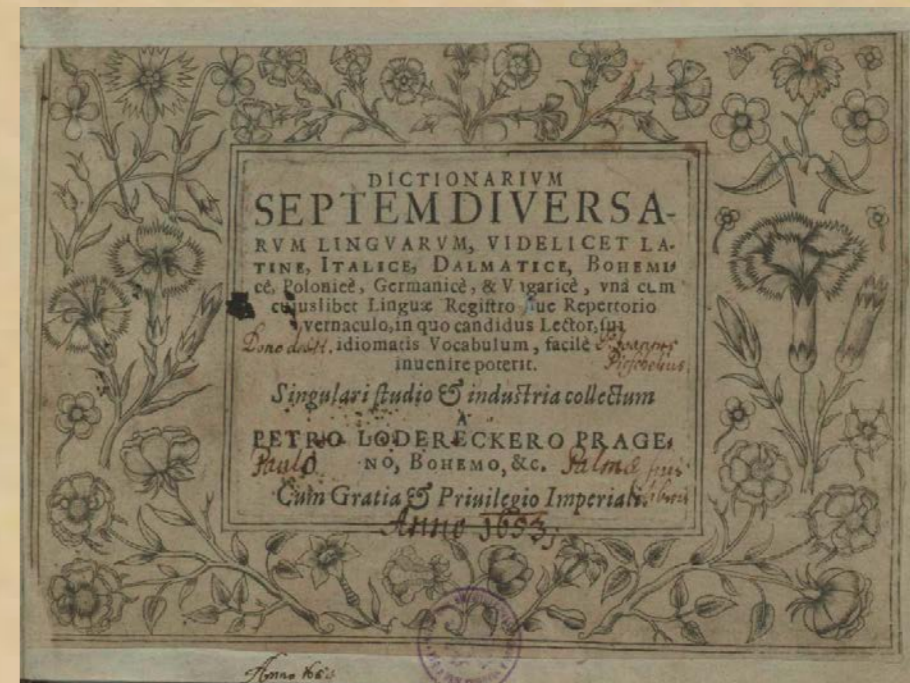 DICTIONARIVM
SEPTEM DIVERSA-
RVM LINGVARVM, VIDELICET LA-
TINE, ITALICE, DALMATICE, BOHEMI-
cè, Polonicè, Germanicè, & Vngaricè, vnà cum
cujuslibet Linguæ Registro siue Repertorio
vernaculo, in quo candidus Lector, sui
Dono dedit. idiomatis Vocabulum, facilè Joannes
inuenire poterit.
Singulari studio & industria collectum
A
PETRO LODERECKERO PRAGE-
Paulo NO, BOHEMO, &c. Palmæ suis
Cum Gratia & Priuilegio Imperiali.
Anno 1653